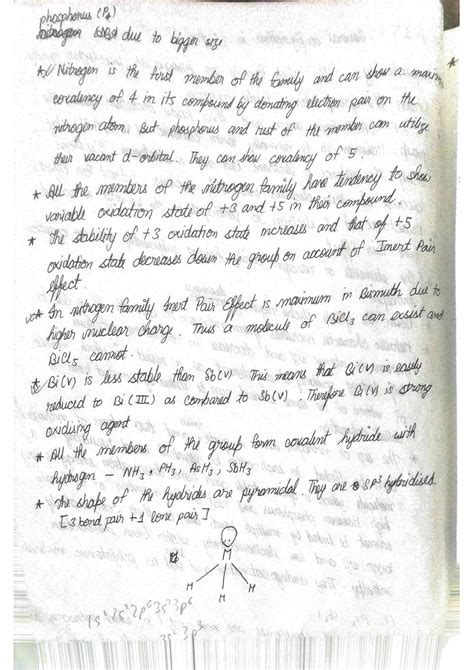 phosphorus (P4)
due to bigger size
Nitrogen is the first member of the family and can show a maxim
covalency of 4 in its compound by donating electron pair on the
nitrogen atom. But phosphorus and rest of the member can utilize
their vacant d-orbital. They can show covalency of 5.
* All the members of the nitrogen family have tendency to show
variable oxidation state of +3 and +5 in their compound.
* The stability of +3 oxidation state increases and that of +5
oxidation state decreases down the group on account of Inert Pair
effect.
* In nitrogen family Inert Pair Effect is maximum in Bismuth due to
higher nuclear charge. Thus a molecule of BiCl3 can exist and
BiCl5 cannot.
* Bi(V) is less stable than Sb(V) This means that Bi(V) is easily
reduced to Bi(III) as compared to Sb(V). Therefore Bi(V) is strong
oxidising agent.
* All the members of the group form covalent hydride with
hydrogen - NH3, PH3, AsH3, SbH3
* The shape of the hydrides are pyramidal. They are SP3 hybridised
[3 bond pair + 1 lone pair]
M
H H H